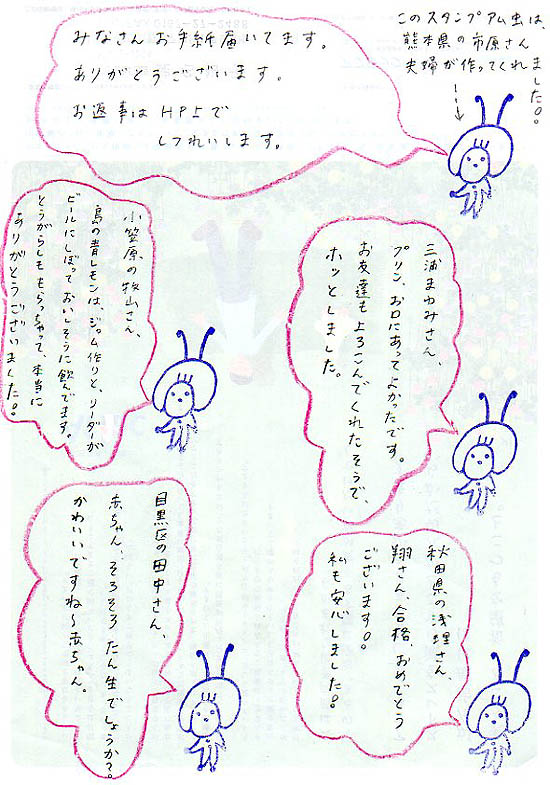 みなさんお手紙届いてます。
ありがとうございます。
お返事はHP上で
しつれいします。
このスタンプアム虫は、
熊本県の市原さん
夫婦が作ってくれました。
三浦まゆみさん、
プリン、お口にあってよかったです。
お友達もよろこんでくれたそうで、
ホッとしました。
小笠原の牧山さん、
島の青レモンは、ジャム作りと、リーダーが
ビールにしぼっておいしそうに飲んでます。
とうがらしももらっちゃって、本当に
ありがとうございました。
秋田県の浅理さん、
翔さん、合格、おめでとう
ございます。
私も安心しました。
目黒区の田中さん、
赤ちゃん、そろそろたん生でしょうか？
かわいいですね〜赤ちゃん。